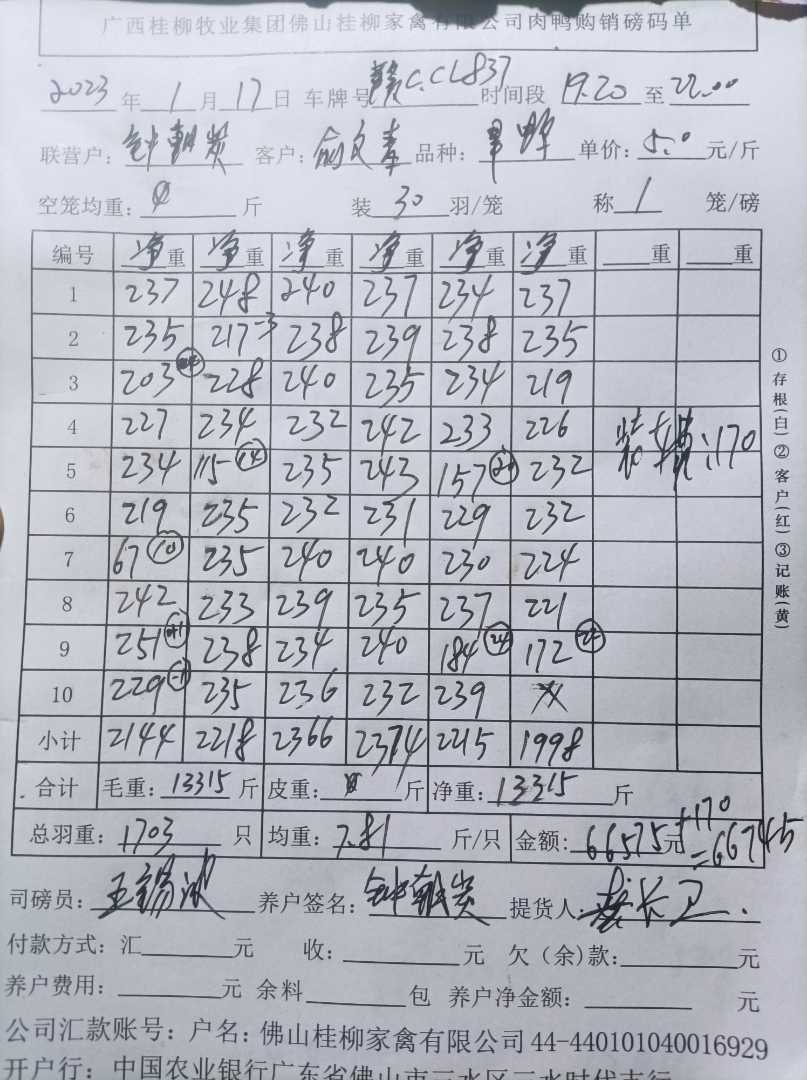 广西桂柳牧业集团佛山桂柳家禽有限公司肉鸭购销磅码单
2023 年 1 月 17 日 车牌号 赣C.CL837 时间段 19.20 至 22.00
联营户: 钟朝炭 客户: 俞文春 品种: 单价: 5.0 元/斤
空笼均重: 0 斤 装 30 羽/笼 称 1 笼/磅
编号 净重 净重 净重 净重 净重 净重 重 重
1 237 248 240 237 234 237
2 235 217-3 238 239 238 235
3 203 228 240 235 234 219
4 227 234 232 242 233 226 装 :170
5 234 115 14 235 243 157 20 232
6 219 235 232 231 229 232
7 67 10 235 240 240 230 224
8 242 233 239 235 237 221
9 251 +1 238 234 240 184 24 172
10 229 -1 235 236 232 239
小计 2144 2218 2366 2374 2215 1998
合计 毛重: 13315 斤 皮重: 0 斤 净重: 13315 斤
总羽重: 1703 只 均重: 7.81 斤/只 金额: 66575 元 +170
=66745
司磅员: 王锡波 养户签名: 钟朝炭 提货人: 长卫.
付款方式: 汇 元 收: 元 欠(余)款: 元
养户费用: 元 余料 包 养户净金额: 元
公司汇款账号: 户名: 佛山桂柳家禽有限公司 44-440101040016929
开户行: 中国农业银行广东省佛山市三水区三水时代支行
①存根(白)②客户(红)③记账(黄)